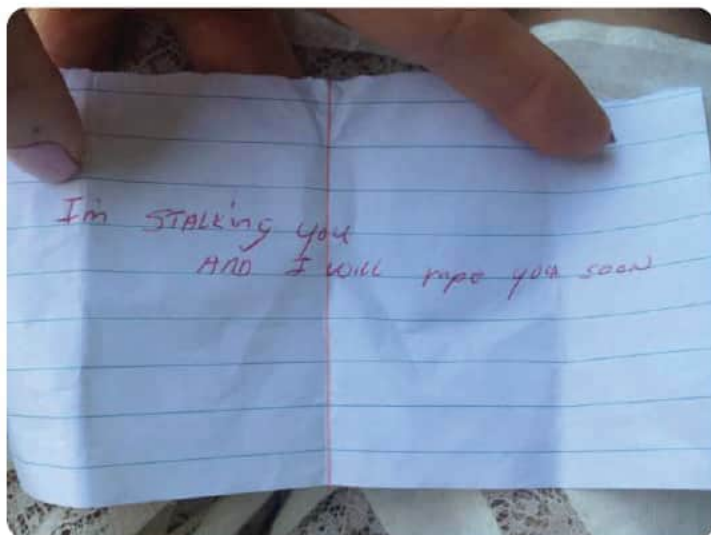 I'm STALKing you
AND I will rape you soon